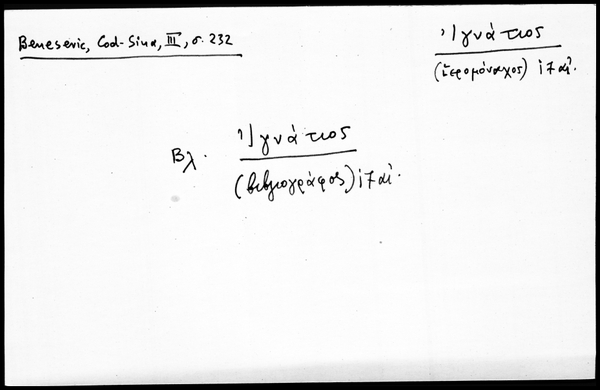 Benesevic, Cod-Sina, III, σ. 232
Ἰγνάτιος
(ἱερομόναχος) ι7 αἰ.
Βλ. Ἰγνάτιος
(βιβλιογράφος) ι7 αἰ.